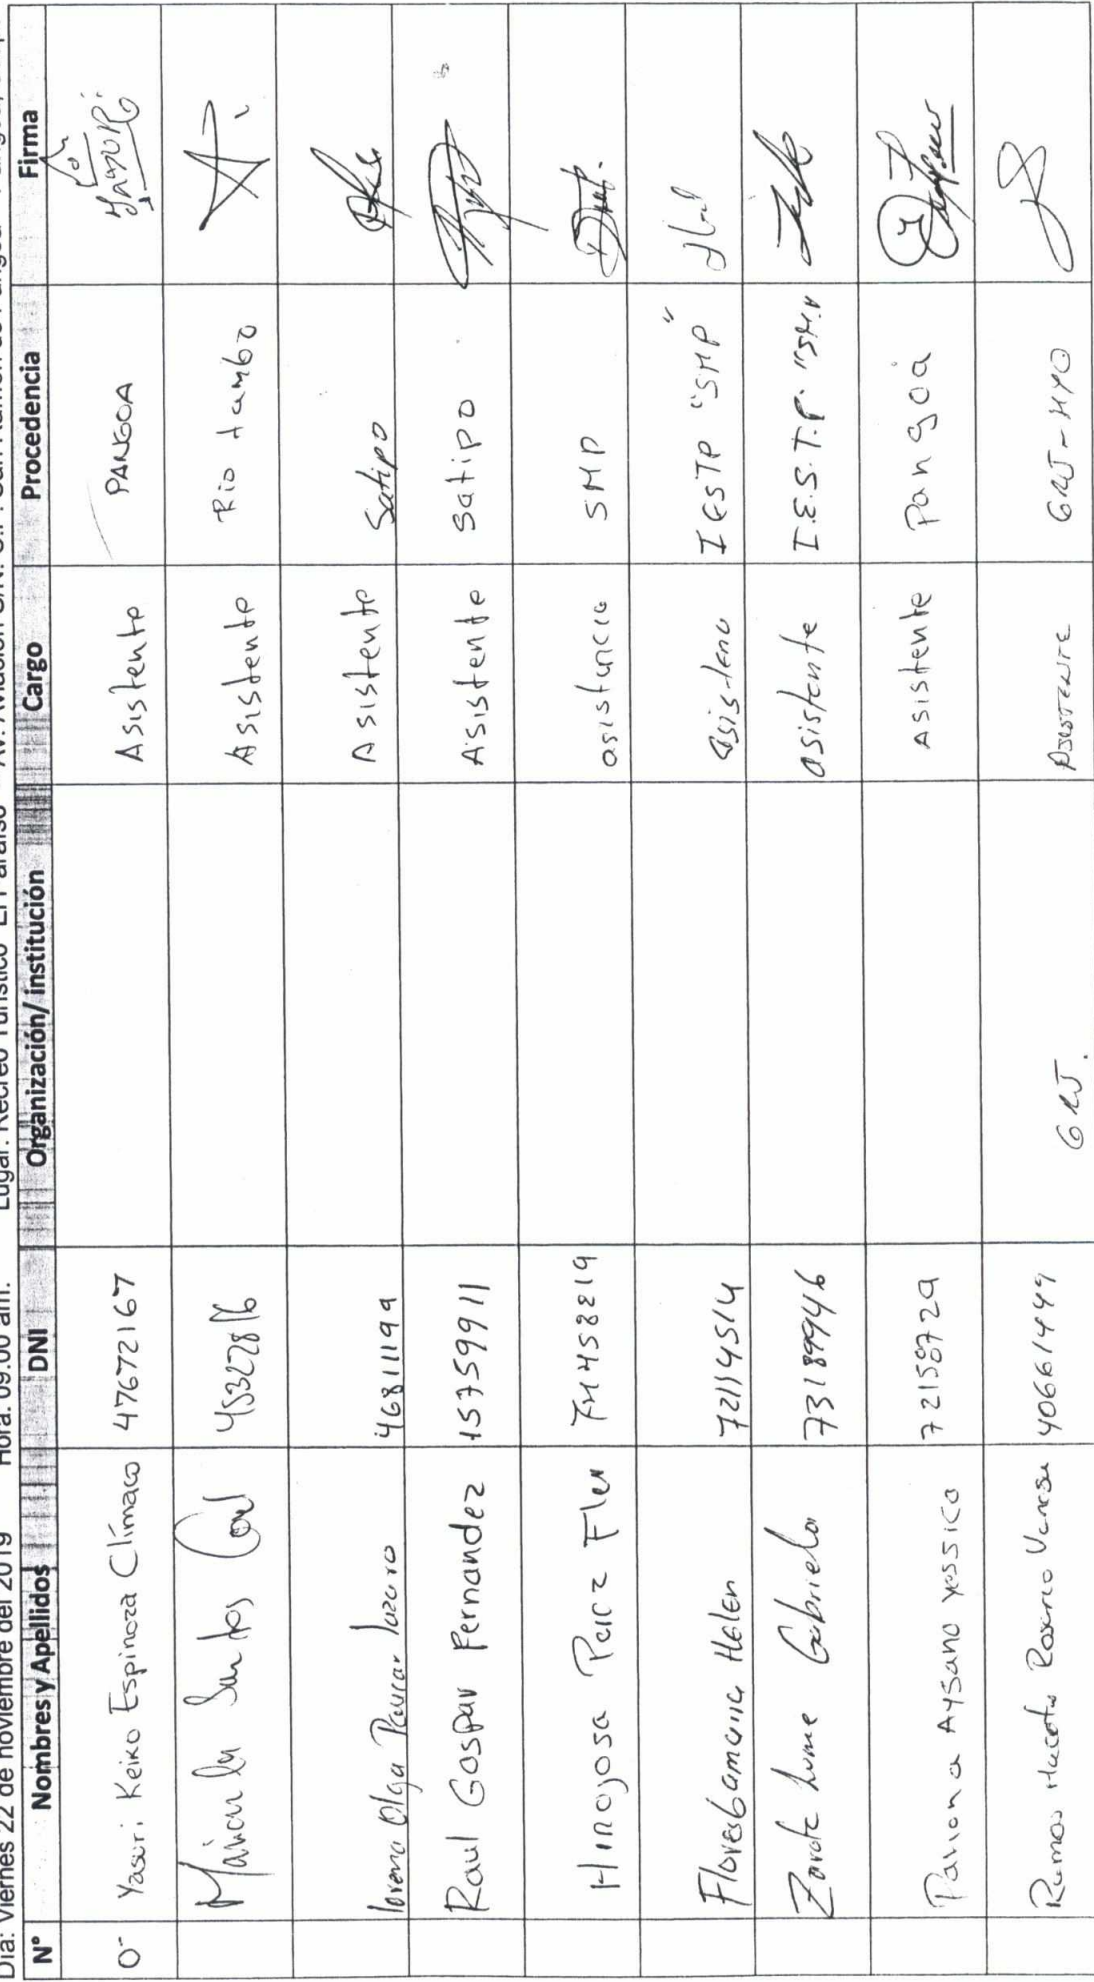 Día: Viernes 22 de noviembre del 2019 Hora: 09:00 am. Lugar: Recreo Turístico
N° Nombres y Apellidos DNI Organización/ institución Cargo Procedencia Firma
0- Yasuri Keiko Espinoza Clímaco 47672167 Asistente PANGOA
Santos 45327816 Asistente Rio tambo
lorena Olga Paucar lazaro 46811199 Asistente Satipo
Raul Gospar Fernandez 15759911 Asistente Satipo
Hinoyosa Perez Fler asistencia SMP
Flores Gamarra Helen 72114514 IESTP "SMP"
Zarate Lume Gabriela 73189946 asistente I.E.S.T.P.
Paiona Aysano Yessica 72158729 Asistente Pangoa
Ramos Rosario Vanesa 40661449 GRJ. ASISTENTE GRJ-HYO